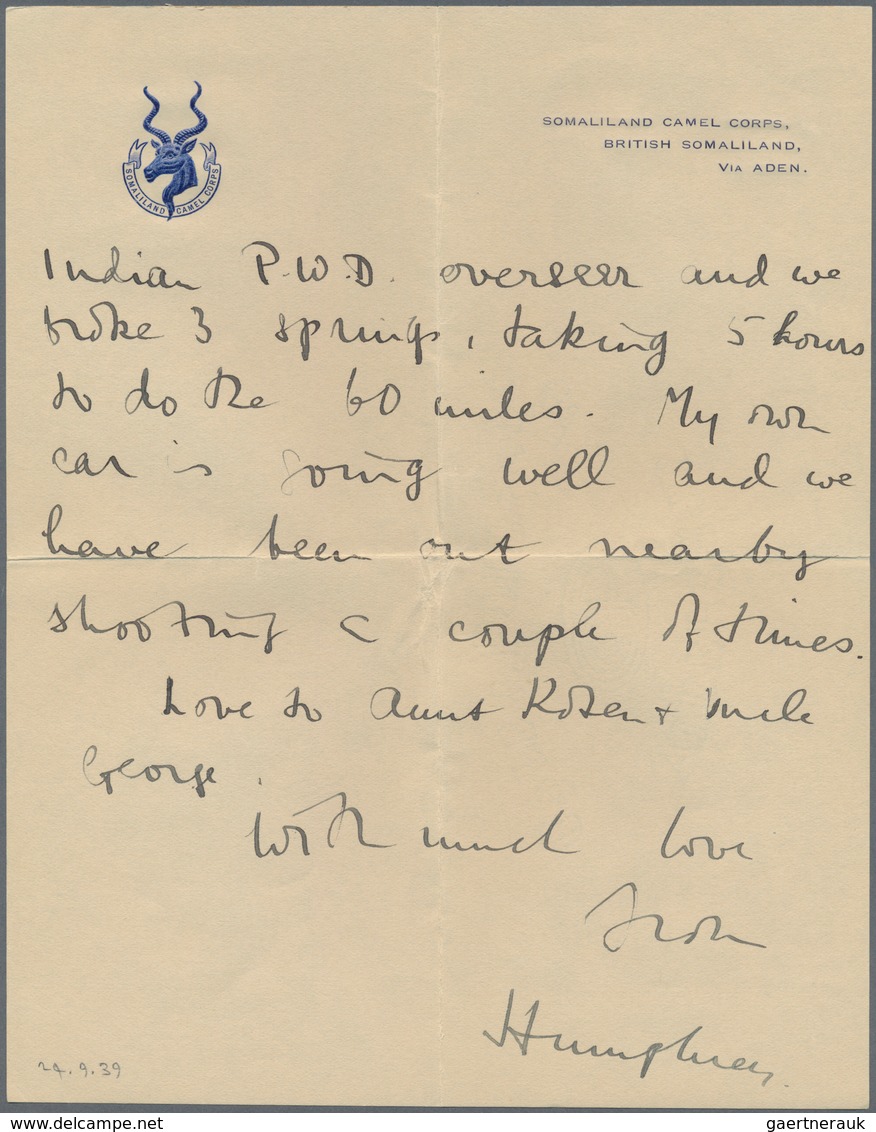 SOMALILAND CAMEL CORPS
SOMALILAND CAMEL CORPS,
BRITISH SOMALILAND,
VIA ADEN.
Indian P.W.D. overseer and we
broke 3 springs, taking 5 hours
to do the 60 miles. My own
car is going well and we
have been out nearby
shooting a couple of times.
Love to Aunt + Uncle
George.
With much love
from
Humphrey.
24.9.39
delcampe.net
gaertnerauk